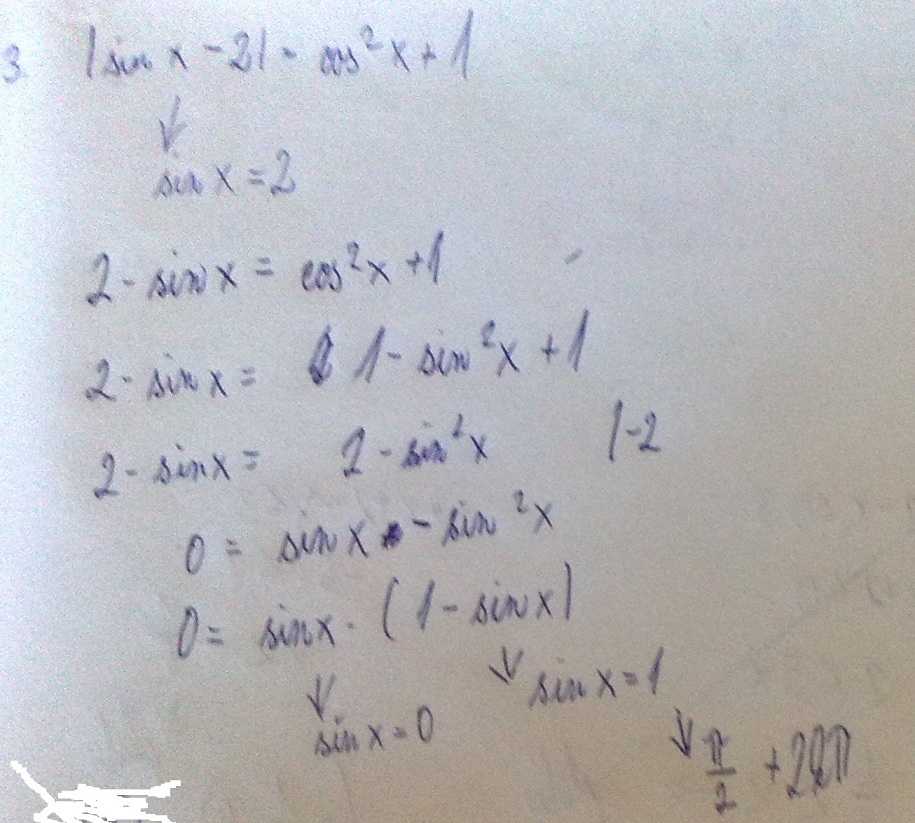 3. |sin x - 2| = cos²x + 1
↓
sin x = 2
2 - sin x = cos²x + 1
2 - sin x = 1 - sin²x + 1
2 - sin x = 2 - sin²x |-2
0 = sin x - sin²x
0 = sin x · (1 - sin x)
↓ ↓ sin x = 1
sin x = 0
↓ π/2 + 2kπ